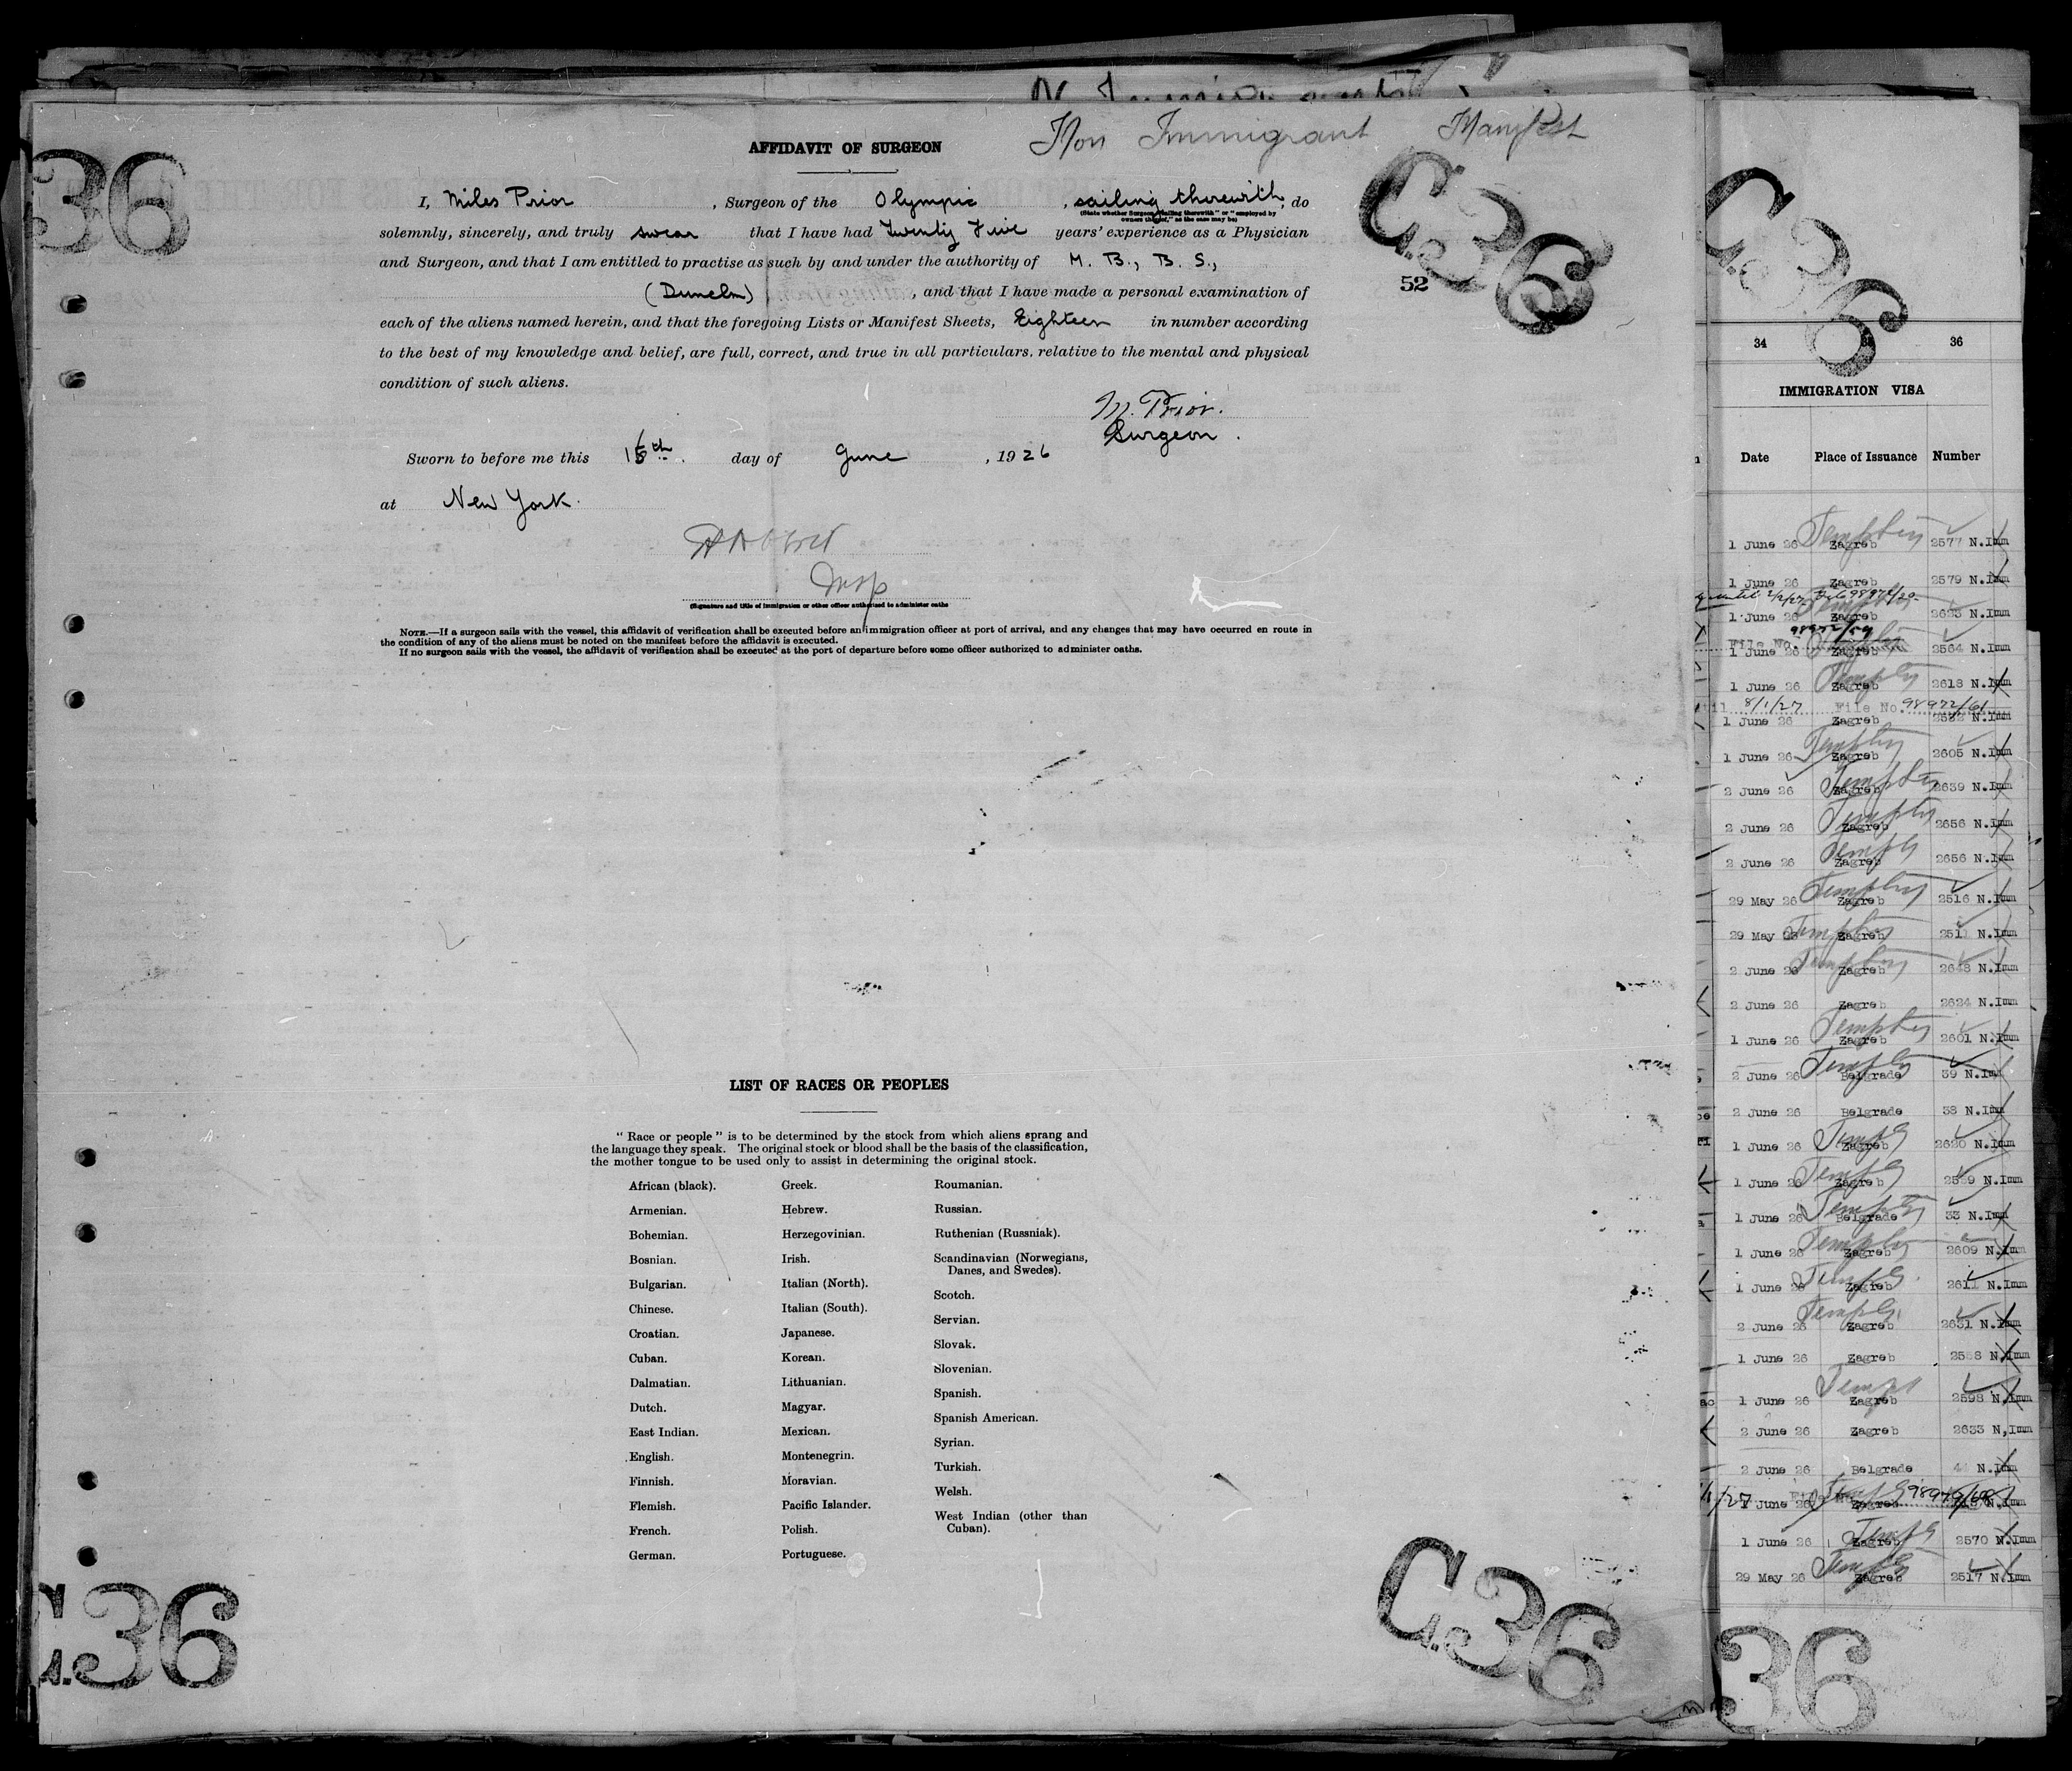 Non Immigrant Manifest
AFFIDAVIT OF SURGEON
36
C. 36
I, Miles Prior, Surgeon of the Olympic, sailing therewith, do
(State whether Surgeon "sailing therewith" or "employed by
owners thereof," as the case may be)
solemnly, sincerely, and truly swear that I have had Twenty Five years' experience as a Physician
and Surgeon, and that I am entitled to practise as such by and under the authority of M. B., B. S.,
(Dunelm), and that I have made a personal examination of
52
each of the aliens named herein, and that the foregoing Lists or Manifest Sheets, Eighteen in number according
to the best of my knowledge and belief, are full, correct, and true in all particulars, relative to the mental and physical
condition of such aliens.
M. Prior.
Surgeon.
Sworn to before me this day of June, 1926
at New York.
Insp
(Signature and title of Immigration or other officer authorized to administer oaths
NOTE.—If a surgeon sails with the vessel, this affidavit of verification shall be executed before an immigration officer at port of arrival, and any changes that may have occurred en route in
the condition of any of the aliens must be noted on the manifest before the affidavit is executed.
If no surgeon sails with the vessel, the affidavit of verification shall be executed at the port of departure before some officer authorized to administer oaths.
LIST OF RACES OR PEOPLES
"Race or people" is to be determined by the stock from which aliens sprang and
the language they speak. The original stock or blood shall be the basis of the classification,
the mother tongue to be used only to assist in determining the original stock.
African (black).
Armenian.
Bohemian.
Bosnian.
Bulgarian.
Chinese.
Croatian.
Cuban.
Dalmatian.
Dutch.
East Indian.
English.
Finnish.
Flemish.
French.
German.
Greek.
Hebrew.
Herzegovinian.
Irish.
Italian (North).
Italian (South).
Japanese.
Korean.
Lithuanian.
Magyar.
Mexican.
Montenegrin.
Moravian.
Pacific Islander.
Polish.
Portuguese.
Roumanian.
Russian.
Ruthenian (Russniak).
Scandinavian (Norwegians,
Danes, and Swedes).
Scotch.
Servian.
Slovak.
Slovenian.
Spanish.
Spanish American.
Syrian.
Turkish.
Welsh.
West Indian (other than
Cuban).
36
C. 36
C. 36
34 36
IMMIGRATION VISA
Date Place of Issuance Number
1 June 26 Zagreb 2577 N.Imm
1 June 26 Zagreb 2579 N.Imm
1 June 26 Zagreb 2623 N.Imm
File No. 98972/59
1 June 26 Zagreb 2564 N.Imm
1 June 26 Zagreb 2618 N.Imm
8/1/27 File No. 98972/61
1 June 26 Zagreb N.Imm
1 June 26 Zagreb 2605 N.Imm
2 June 26 Zagreb 2639 N.Imm
2 June 26 Zagreb 2656 N.Imm
2 June 26 Zagreb 2656 N.Imm
29 May 26 Zagreb 2516 N.Imm
29 May 26 Zagreb N.Imm
2 June 26 Zagreb 2648 N.Imm
2 June 26 Zagreb 2624 N.Imm
1 June 26 Zagreb 2601 N.Imm
2 June 26 Belgrade 39 N.Imm
2 June 26 Belgrade 38 N.Imm
1 June 26 Zagreb 2620 N.Imm
1 June 26 Zagreb N.Imm
1 June 26 Belgrade 33 N.Imm
1 June 26 Zagreb 2609 N.Imm
1 June 26 Zagreb 2611 N.Imm
2 June 26 Zagreb 2631 N.Imm
1 June 26 Zagreb N.Imm
1 June 26 Zagreb 2598 N.Imm
2 June 26 Zagreb 2633 N.Imm
2 June 26 Belgrade N.Imm
1 June 26 Zagreb N.Imm
1 June 26 Zagreb 2570 N.Imm
29 May 26 Zagreb 2517 N.Imm
36